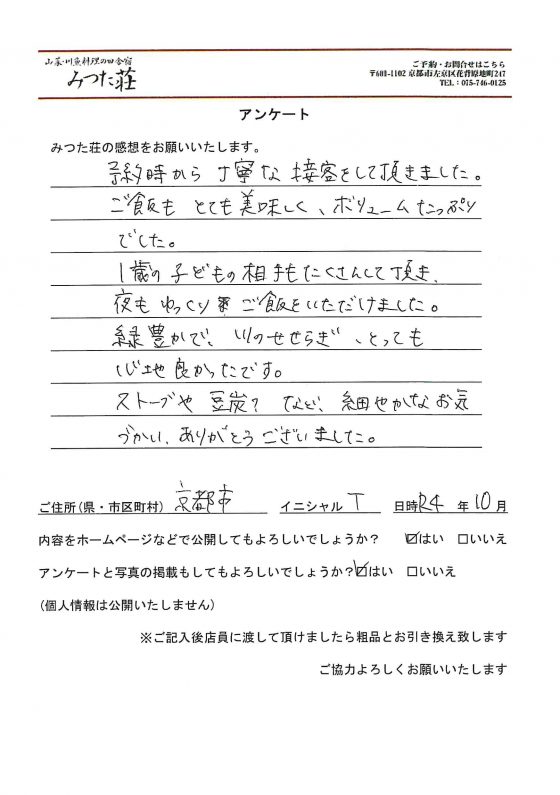 山菜・川魚料理の田舎宿
みつた荘
ご予約・お問合せはこちら
〒601-1102 京都市左京区花背原地町247
TEL:075-746-0125
アンケート
みつた荘の感想をお願いいたします。
予約時から 丁寧な 接客をして頂きました。
ご飯も とても美味しく、ボリュームたっぷり
でした。
1歳の子どもの相手もたくさんして頂き、
夜も ゆっくり ご飯をいただけました。
緑豊かで、川のせせらぎ、とっても
心地良かったです。
ストーブや 豆炭? など、細やかなお気
づかい、ありがとうございました。
ご住所(県・市区町村) 京都市 イニシャル T 日時 R4 年 10 月
内容をホームページなどで公開してもよろしいでしょうか? ☑はい □いいえ
アンケートと写真の掲載もしてもよろしいでしょうか?☑はい □いいえ
(個人情報は公開いたしません)
※ご記入後店員に渡して頂けましたら粗品とお引き換え致します
ご協力よろしくお願いいたします